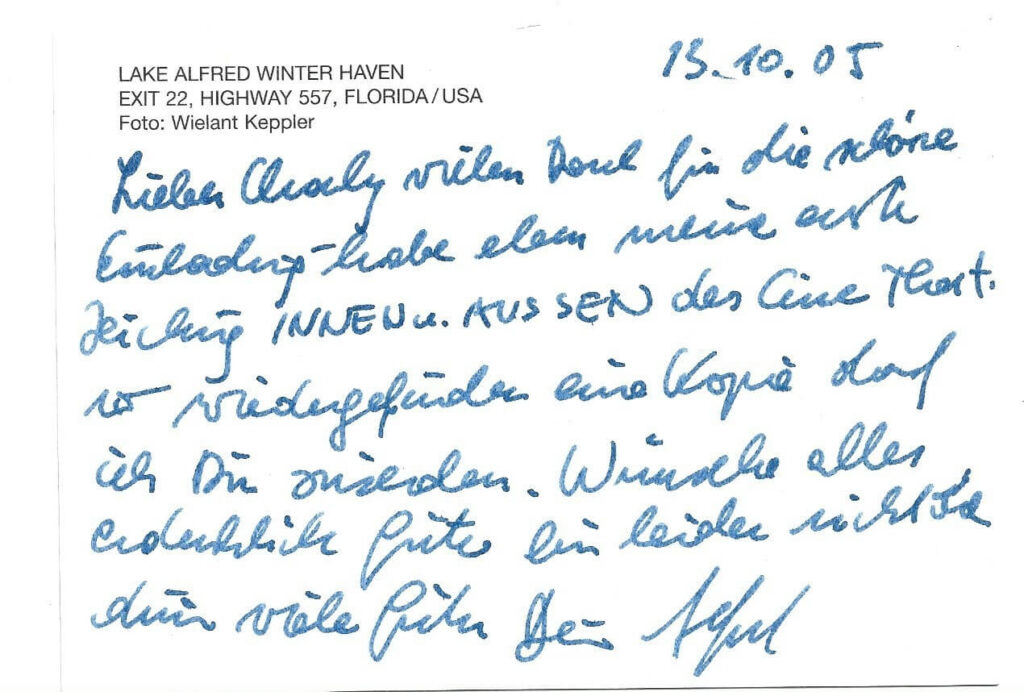 LAKE ALFRED WINTER HAVEN
EXIT 22, HIGHWAY 557, FLORIDA/USA
Foto: Wielant Keppler
13.10.05
Lieber Charly vielen Dank für die schöne
Einladung – habe eben meine erste
Zeichung INNEN u. AUSSEN des Cine Theat.
wiedergefunden eine Kopie darf
ich Dir zusenden. Wünsche alles
erdenklich Gute ein leider nicht
viele Grüße Dein